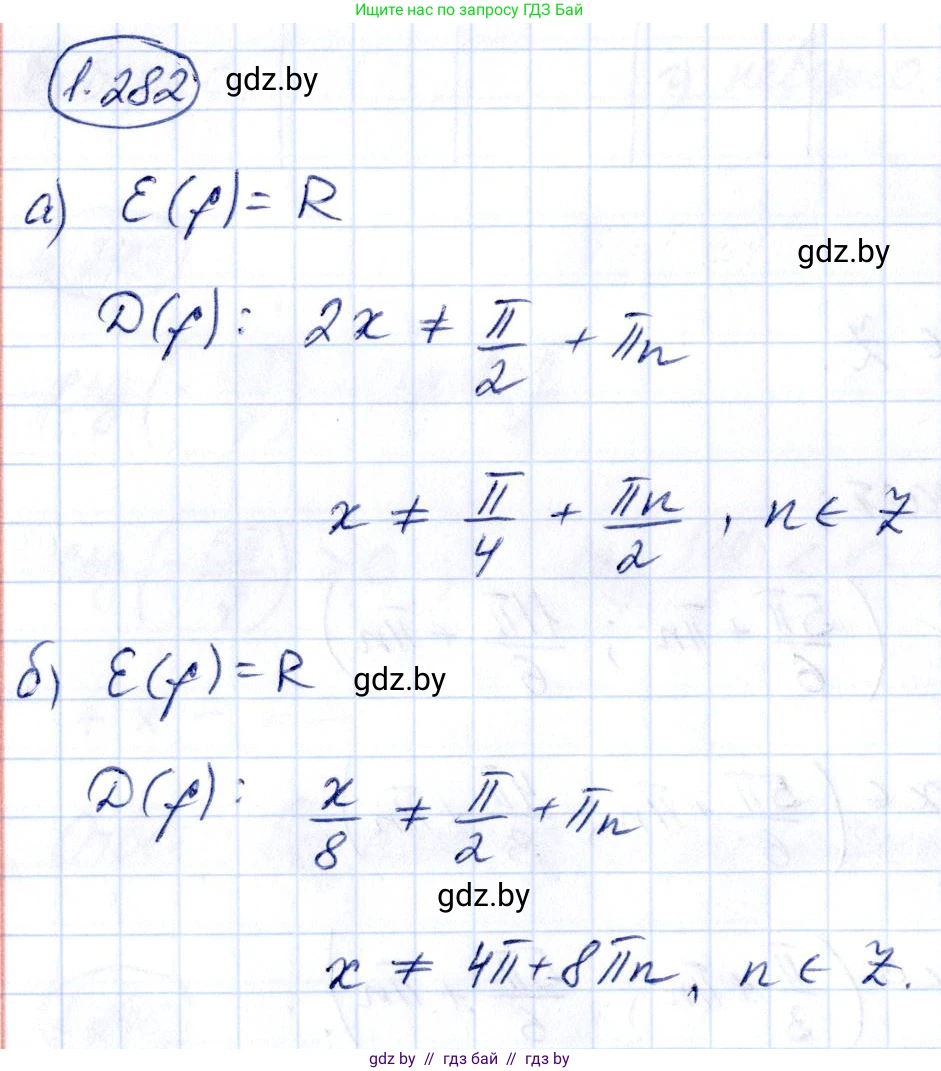 Ищите нас по запросу ГДЗ Бай
1.282 gdz.by
а) E(f) = R
gdz.by
D(f): 2x ≠ π/2 + πn
x ≠ π/4 + πn/2, n ∈ Z
б) E(f) = R gdz.by
D(f): x/8 ≠ π/2 + πn
gdz.by
x ≠ 4π + 8πn, n ∈ Z.
gdz by // гдз бай // gdz by